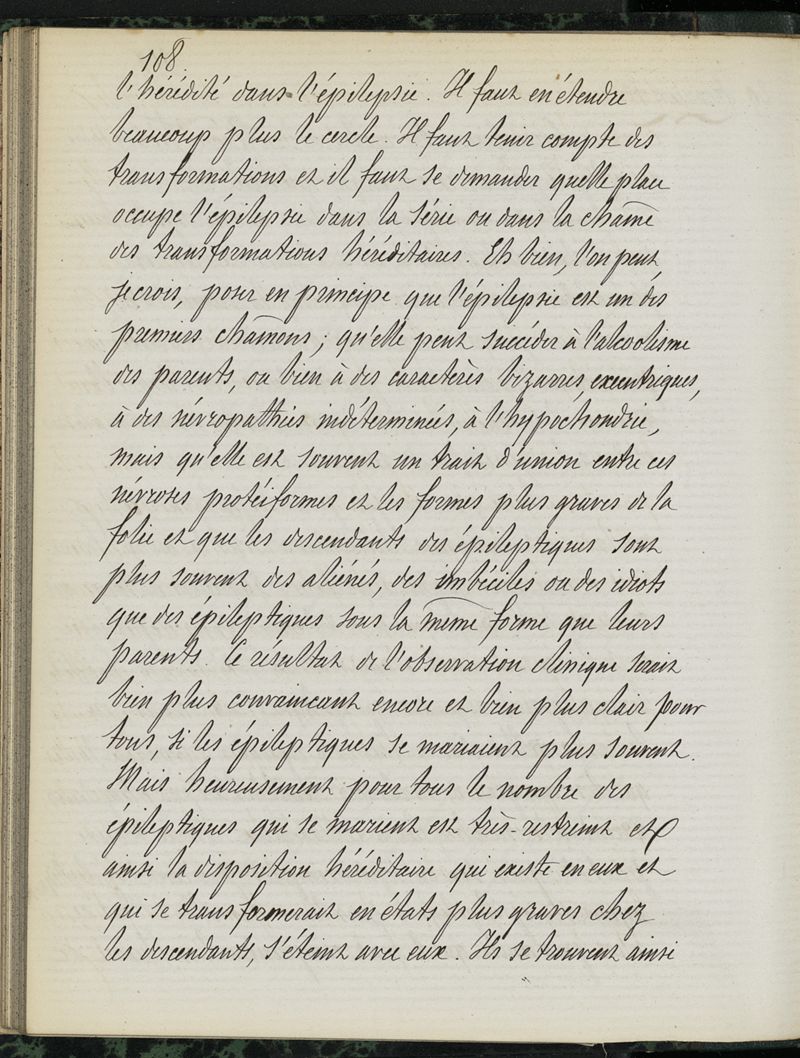 108
l'hérédité dans l'épilepsie. Il faut en étendre
beaucoup plus le cercle. Il faut tenir compte des
transformations et il faut se demander quelle place
occupe l'épilepsie dans la série ou dans la chaîne
des transformations héréditaires. Eh bien, l'on peut,
je crois, poser en principe que l'épilepsie est un des
premiers chaînons; qu'elle peut succéder à l'alcoolisme
des parents, ou bien à des caractères bizarres, excentriques,
à des névropathies indéterminées, à l'hypochondrie,
mais qu'elle est souvent un trait d'union entre ces
névroses protéiformes et les formes plus graves de la
folie et que les descendants des épileptiques sont
plus souvent des aliénés, des imbéciles ou des idiots
que des épileptiques sous la même forme que leurs
parents. Ce résultat de l'observation clinique serait
bien plus convaincant encore et bien plus clair pour
tous, si les épileptiques se mariaient plus souvent.
Mais heureusement pour tous le nombre des
épileptiques qui se marient est très-restreint et
ainsi la disposition héréditaire qui existe en eux et
qui se transformerait en états plus graves chez
les descendants, s'éteint avec eux. Ils se trouvent ainsi